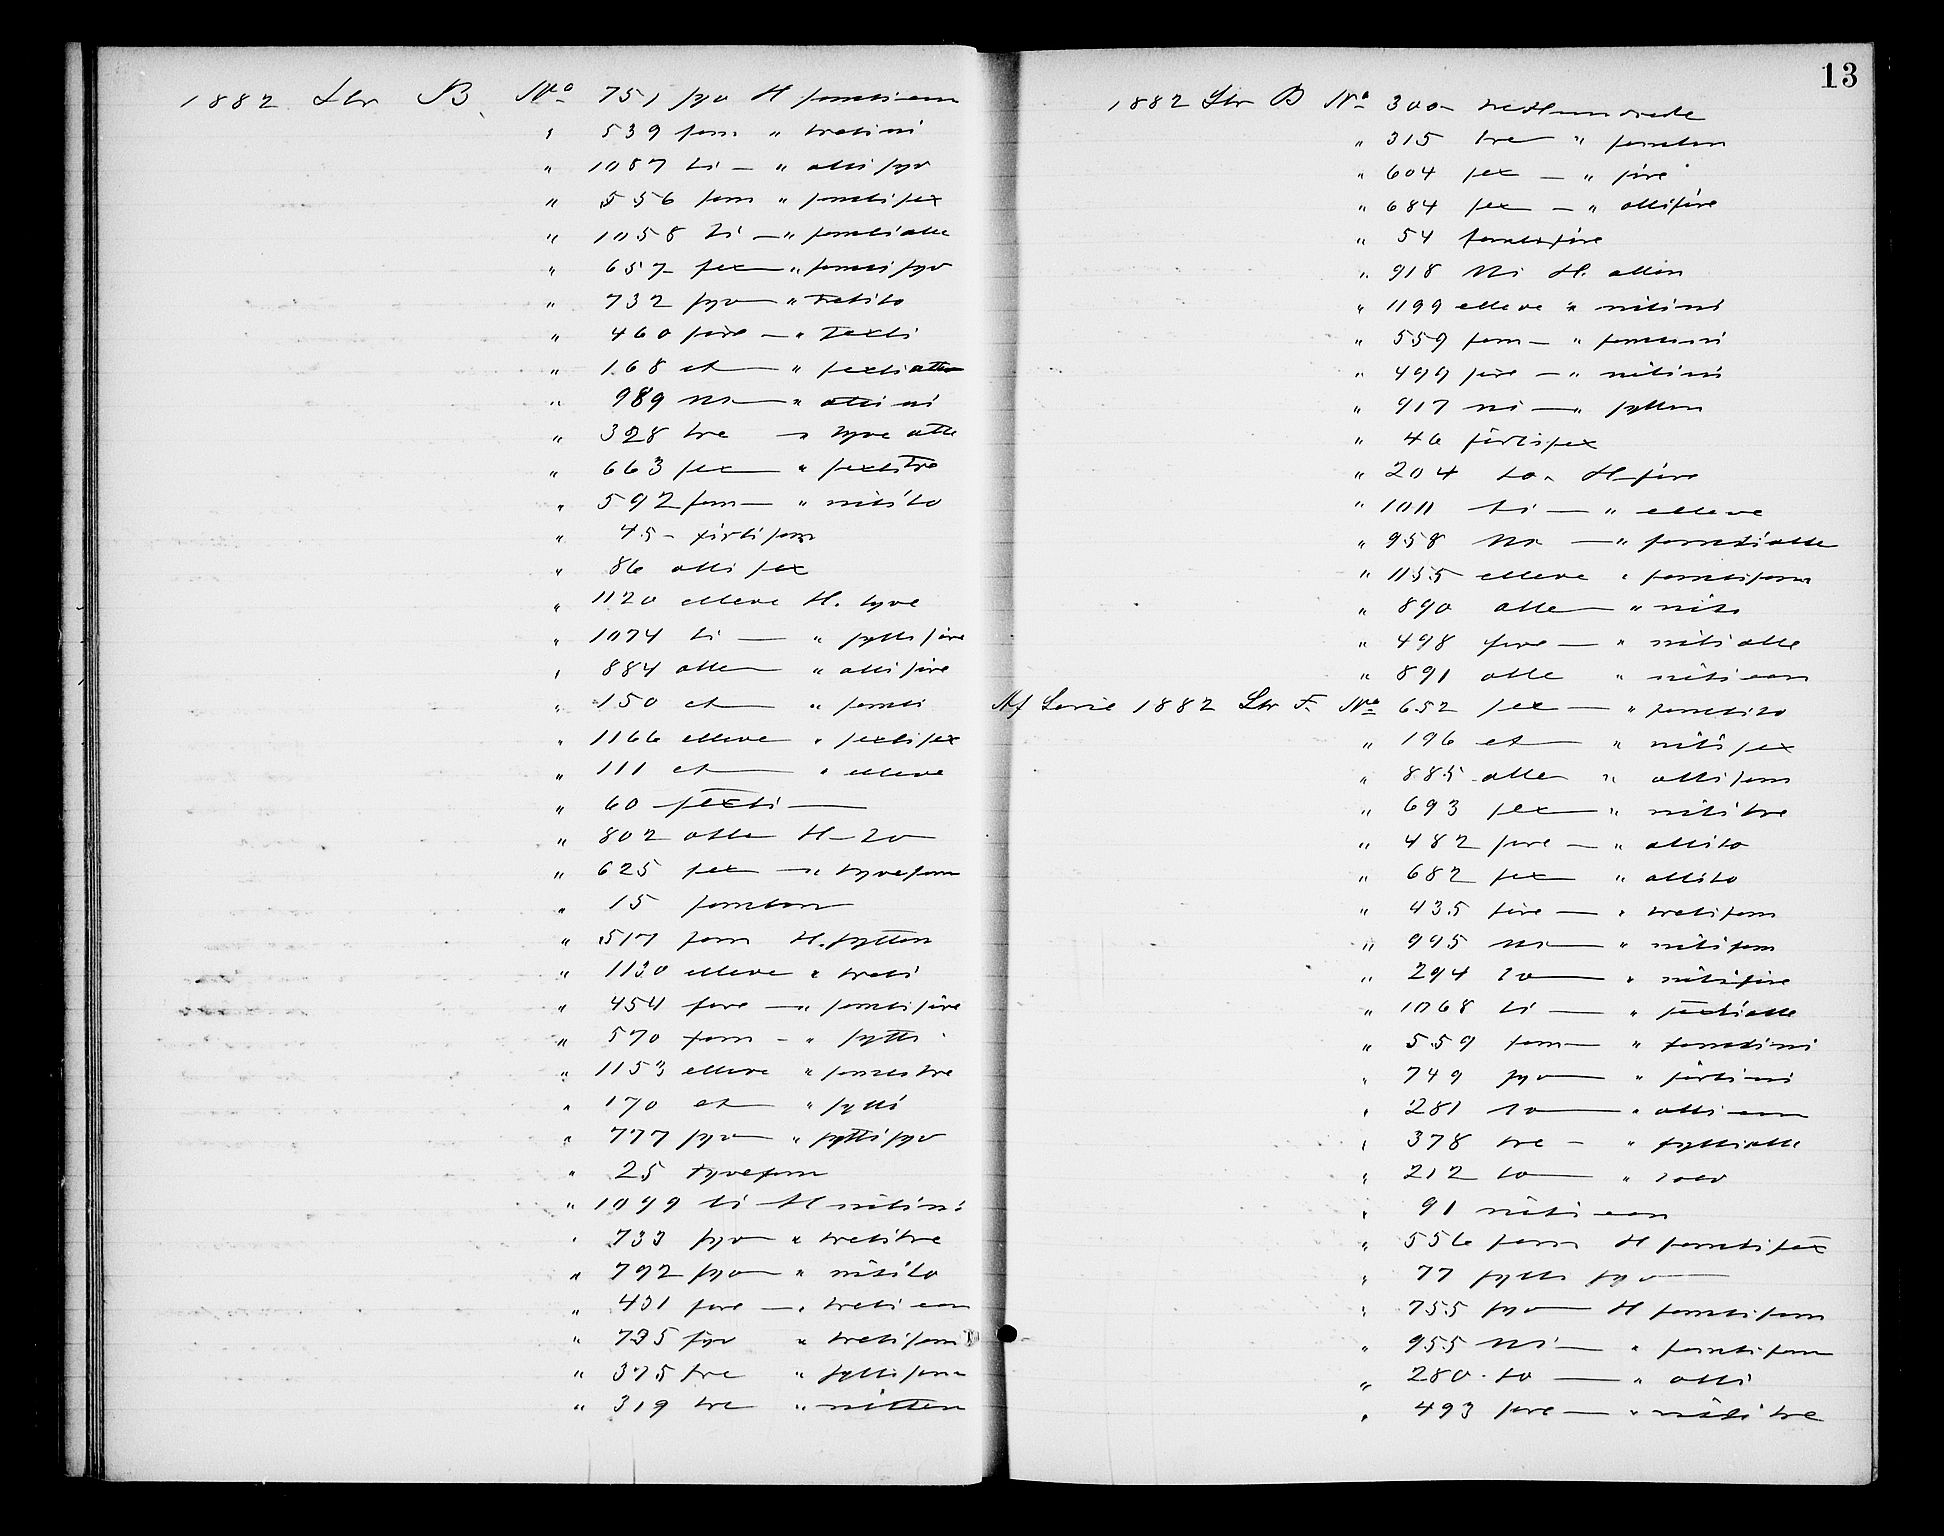 1882 Ltr B. No 751 syv H femtieen
" 539 fem " tretini
" 1087 ti — " ottisyv
" 556 fem " femtisex
" 1058 ti — " femtiotte
" 657 sex — " femtisyv
" 732 syv — " tretito
" 460 fire — " sexti
" 168 et — " sextiotte
" 989 ni — " ottini
" 328 tre — " tyveotte
" 663 sex — " sextitre
" 592 fem — " nitito
" 45 — førtifem
" 86 ottisex
" 1120 elleve H. tyve
" 1074 ti — " syttifire
" 884 otte — " ottifire
" 150 et — " femti
" 1166 elleve " sextisex
" 111 et — " elleve
" 60 sexti —
" 802 otte H — to —
" 625 sex — " tyvefem
" 15 femten —
" 517 fem H. sytten
" 1130 elleve " treti
" 454 fire — " femtifire
" 570 fem — " sytti
" 1153 elleve " femtitre
" 170 et — " sytti
" 777 syv — " syttisyv
" 25 tyvefem
" 1099 ti — H nitini
" 733 syv — " tretitre
" 792 syv — " nitito
" 431 fire — " tretieen
" 735 syv " tretifem
" 375 tre " syttifem
" 319 tre " nitten
13
1882 Ltr B No 300 — trehundrede
" 315 tre — " femten
" 604 sex — " fire
" 684 sex — " ottifire
" 54 femtifire
" 918 Ni H. atten
" 1199 elleve " nitini
" 559 fem — " femtini
" 499 fire — " nitini
" 917 ni — " sytten
" 46 førtisex
" 204 to H — fire
" 1011 ti — " elleve
" 958 Ni — " femtiotte
" 1155 elleve " femtifem
" 890 otte — " niti
" 498 fire — " nitiotte
" 891 otte " nitieen
Af Serie 1882 Ltr F. No 652 sex — " femtito
" 196 et — " nitisex
" 885 otte " ottifem
" 693 sex — " nititre
" 482 fire — " ottito
" 682 sex — " ottito
" 435 fire — " tretifem
" 995 ni — " nitifem
" 294 to — " nitifire
" 1068 ti — " sextiotte
" 559 fem — " femtini
" 749 syv — " førtini
" 281 to — " ottieen
" 378 tre — " syttiotte
" 212 to — " tolv
" 91 nitieen
" 556 fem H femtisex
" 77 syttisyv —
" 755 syv — H femtifem
" 955 Ni — " femtifem
" 280 to — " otti
" 493 fire — " nititre